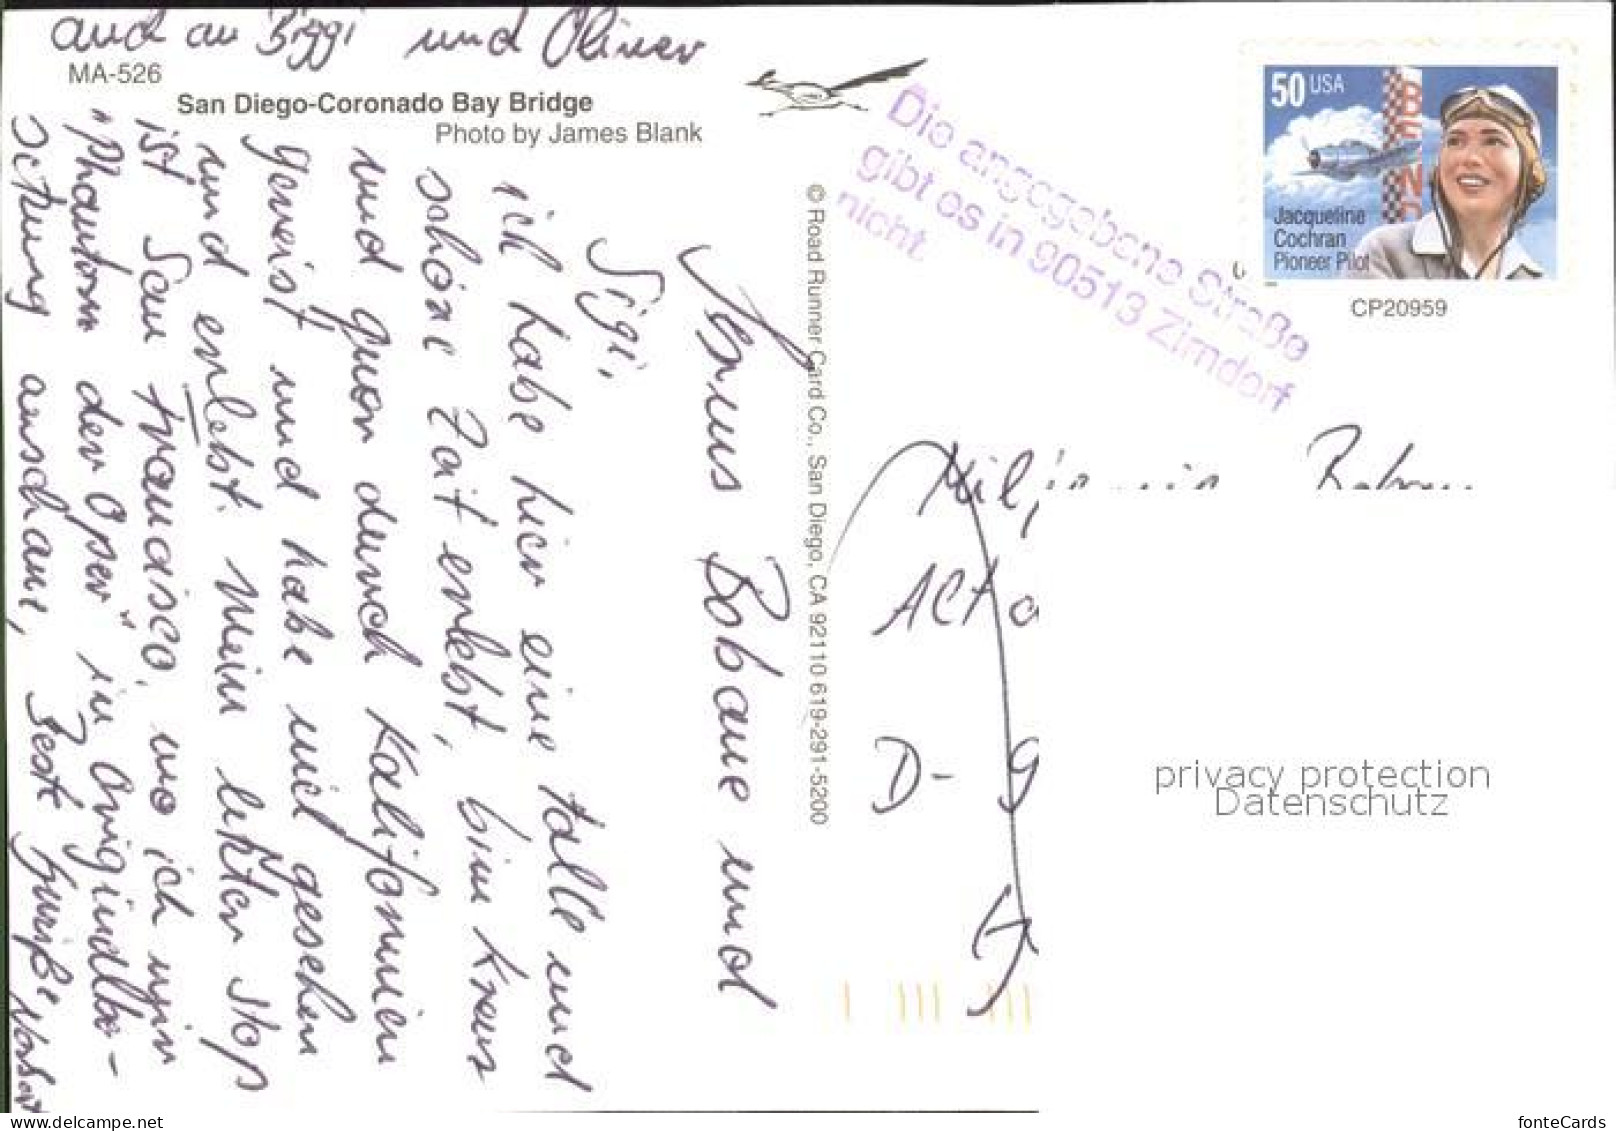 auch an Biggi und Oliver
MA-526
San Diego-Coronado Bay Bridge
Photo by James Blank
Servus Babane und
Sigi,
ich habe hier eine tolle und
schöne Zeit erlebt, bin kreuz
und quer durch Kalifornien
gereist und habe viel gesehen
und erlebt. Mein letzter Stop
ist San Franzisco, wo ich mir
"Phantom der Oper" in Originalbe-
setzung anschaue, Beste Grüße Norbert
© Road Runner Card Co., San Diego, CA 92110 619-291-5200
Die angegebene Straße
gibt es in 90513 Zirndorf
nicht.
50 USA
BENDIX
Jacqueline
Cochran
Pioneer Pilot
CP20959
D-9
privacy protection
Datenschutz
www.delcampe.net
fonteCards